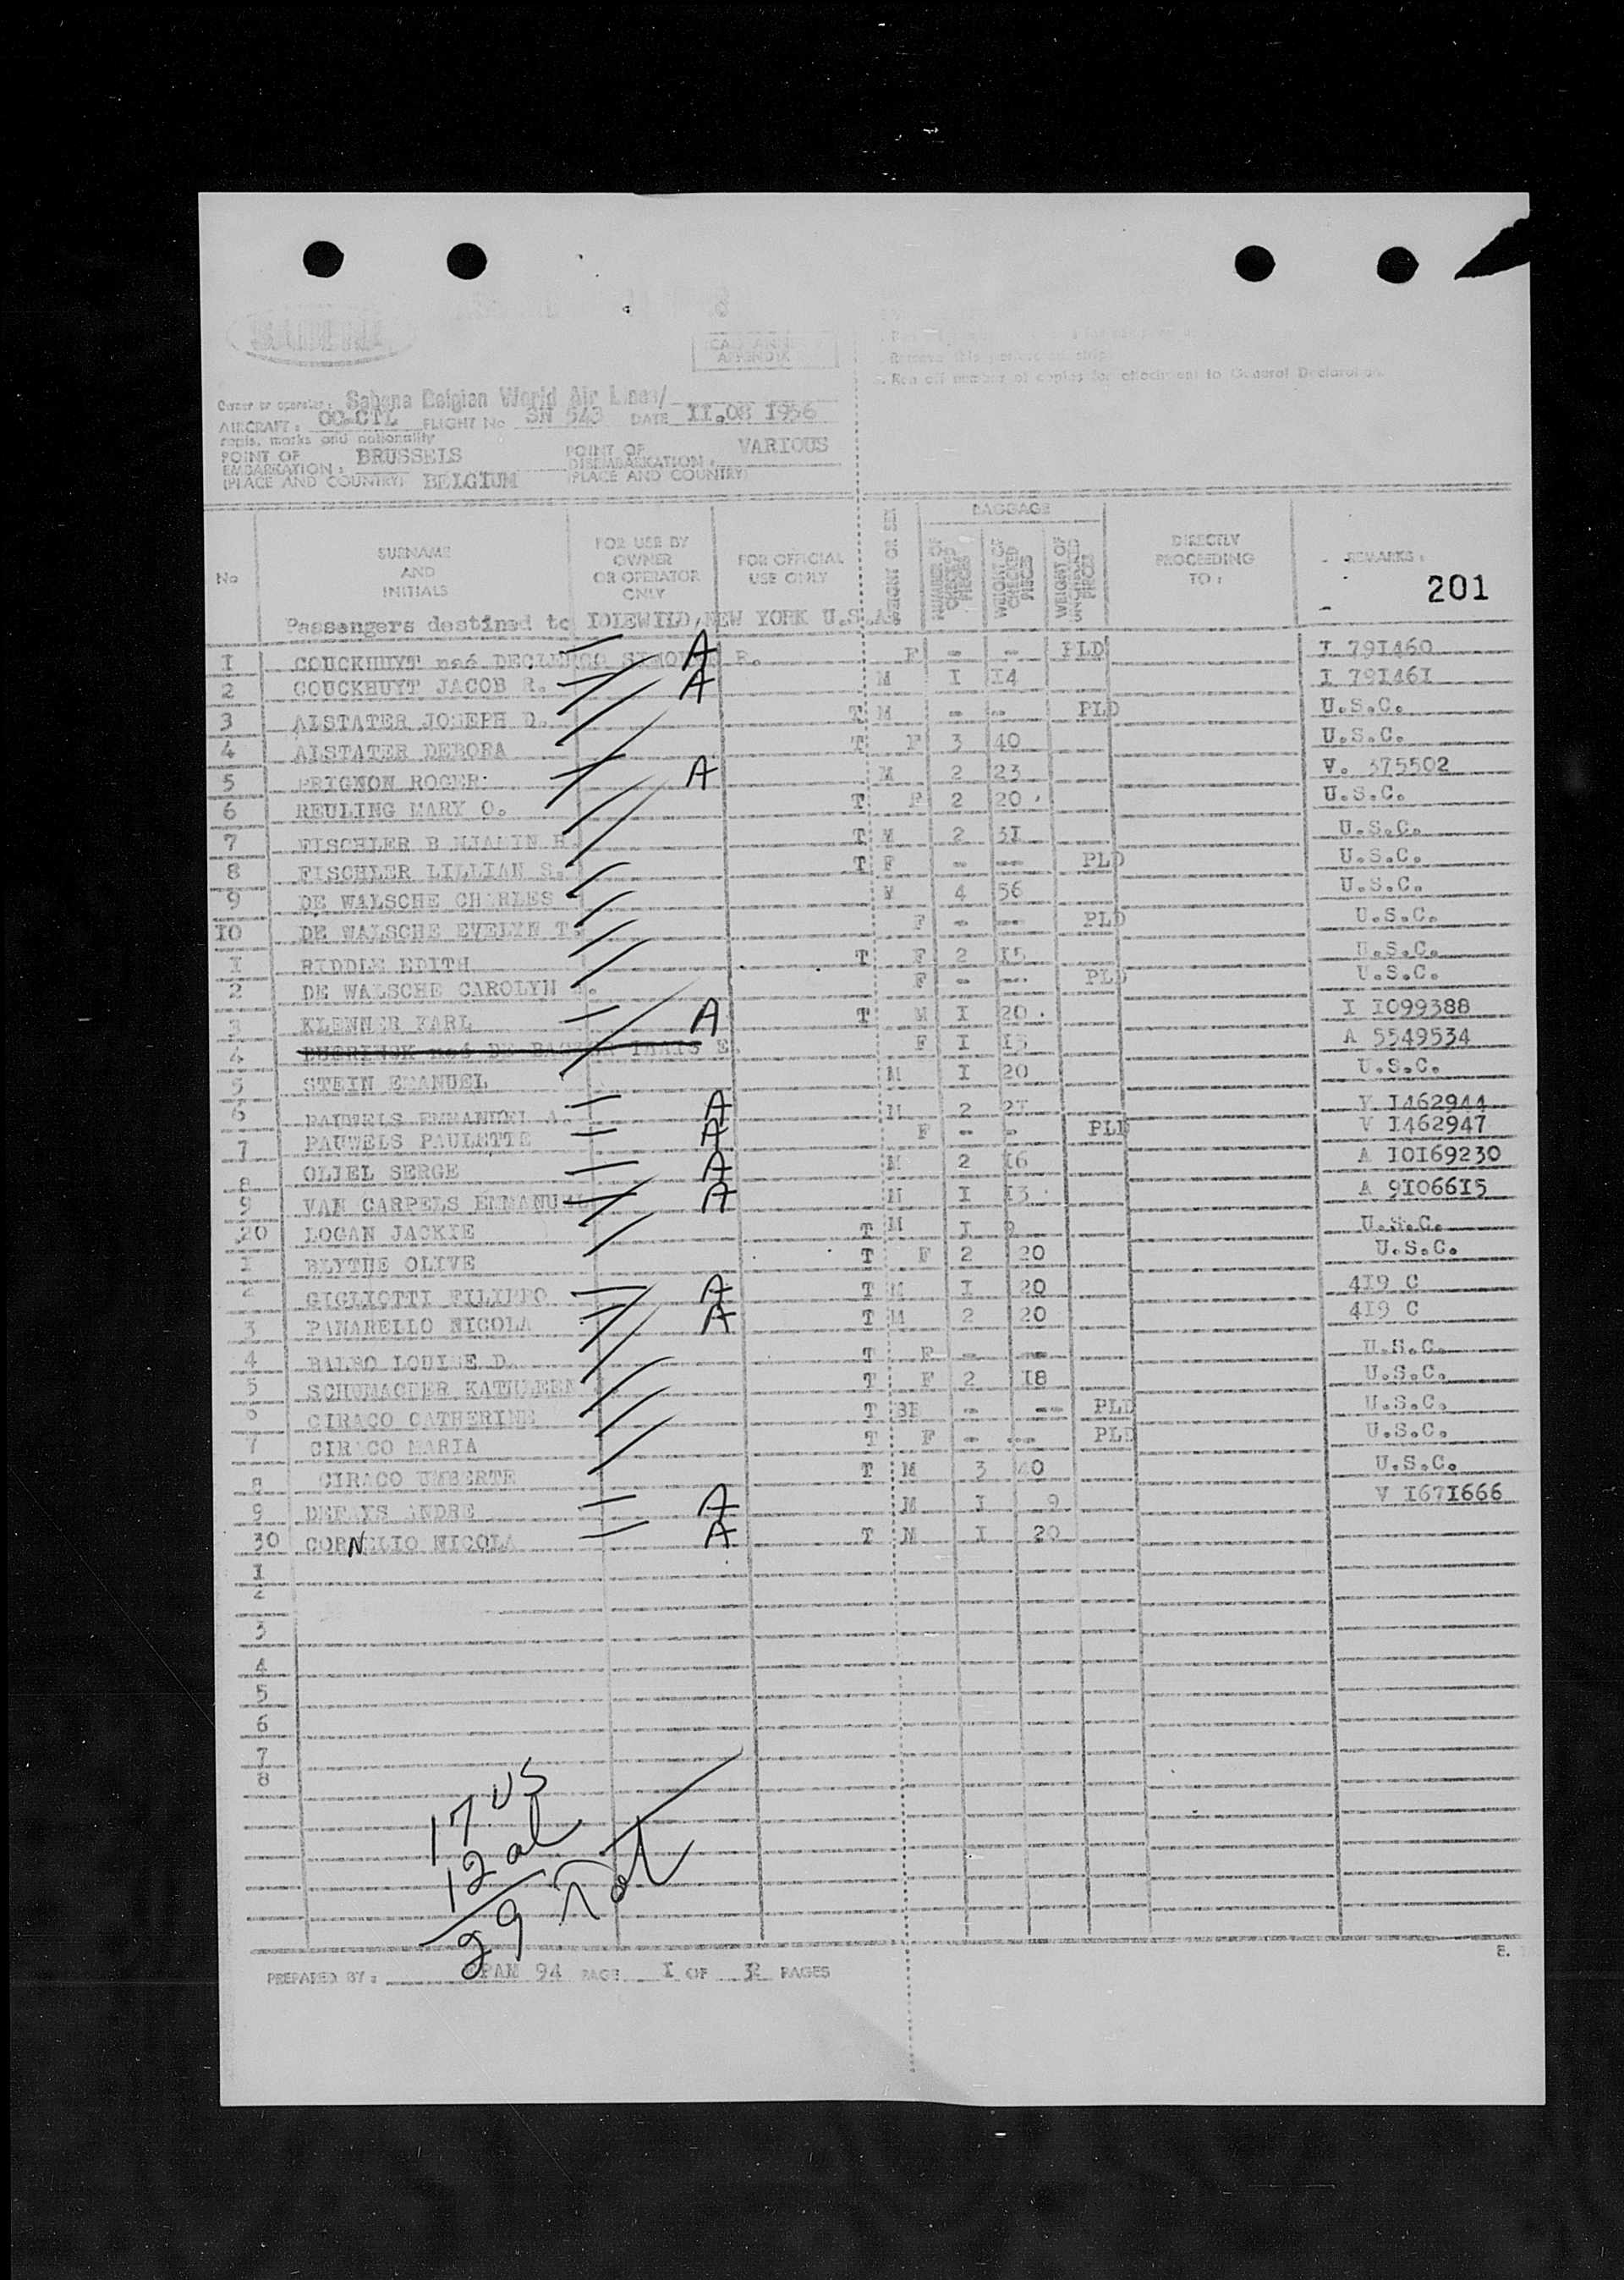 SABENA
CAO ANNEX
APPENDIX
. Remove this
. Run off number of copies for attachment to General Declaration.
Owner or operator: Sabena Belgian World Air Lines/
AIRCRAFT: OO.CTL FLIGHT No SN 543 DATE II.08 1956
regis. marks and nationality
POINT OF EMBARKATION: BRUSSELS POINT OF DISEMBARKATION: VARIOUS
(PLACE AND COUNTRY) BELGIUM (PLACE AND COUNTRY)
No SURNAME AND INITIALS FOR USE BY OWNER OR OPERATOR ONLY FOR OFFICIAL USE ONLY WEIGHT OR SEX BAGGAGE NUMBER OF CHECKED PIECES WEIGHT OF CHECKED PIECES WEIGHT OF UNCHECKED PIECES DIRECTLY PROCEEDING TO: REMARKS:
201
Passengers destined to IDLEWILD, NEW YORK U.S.A.
I COUCKHUYT neé DECLERCQ SIMONNE R. A F - -- PLD I 79I460
2 COUCKHUYT JACOB R. A M I I4 I 79I46I
3 ALSTATER JOSEPH D. T M - -- PLD U.S.C.
4 ALSTATER DEBORA T F 3 40 U.S.C.
5 BRIGNON ROGER A M 2 23 V. 375502
6 REULING MARY O. T F 2 20 U.S.C.
7 FISCHLER B NJAMIN H. T M 2 3I U.S.C.
8 FISCHLER LILLIAN S. T F - -- PLD U.S.C.
9 DE WALSCHE CHARLES M 4 56 U.S.C.
IO DE WALSCHE EVELYN T. F - -- PLD U.S.C.
I RIDDLE EDITH T F 2 I5 U.S.C.
2 DE WALSCHE CAROLYN . F - -- PLD U.S.C.
3 KLENNER KARL A T M I 20 I I099388
4 neé DE E. F I I5 A 5549534
5 STEIN EMANUEL M I 20 U.S.C.
6 PAUWELS EMMANUEL A. A M 2 2I V I462944
7 PAUWELS PAULETTE A F - - PLD V I462947
8 OLIEL SERGE A M 2 I6 A IOI69230
9 VAN CARPELS EMMANUEL A M I I3 A 9I066I5
20 LOGAN JACKIE T M I 9 U.S.C.
I BLYTHE OLIVE T F 2 20 U.S.C.
2 GIGLIOTTI FILIPPO A T M I 20 4I9 C
3 PANARELLO NICOLA A T M 2 20 4I9 C
4 BALBO LOUISE D. T F - -- U.S.C.
5 SCHUMACHER KATHLEEN T F 2 I8 U.S.C.
6 CIRACO CATHERINE T BF - -- PLD U.S.C.
7 CIR CO MARIA T F - -- PLD U.S.C.
8 CIRACO UMBERTE T M 3 40 U.S.C.
9 DEFAYS ANDRE A M I 9 V I67I666
30 CORNELIO NICOLA A T M I 20
I
2
3
4
5
6
7
8
17 US
12 al
29 Tot
PREPARED BY: PAM 94 PAGE I OF 2 PAGES